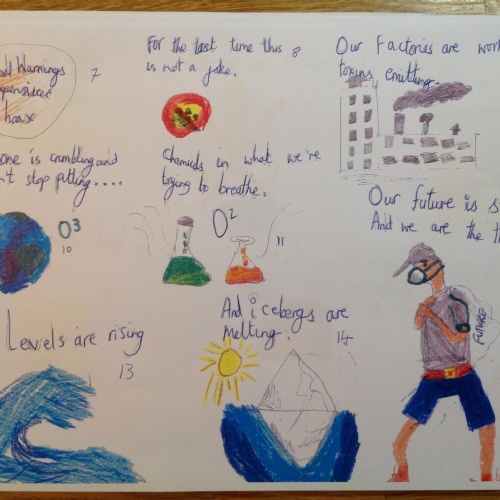 Warnings
7
hoax
For the last time this 8
is not a joke.
Our Factories are
toxins emitting.
one is crumbling and
stop putting....
O3
10
Chemicals in what we're
trying to breathe.
O2
11
Our future is
And we are the
FUTURE
Levels are rising
13
And icebergs are
melting.
14